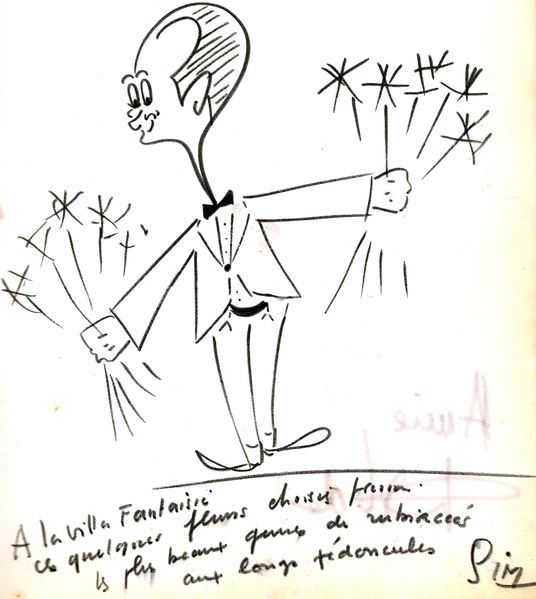 A la Villa Fantaisie
ces quelques fleurs choisies parmi
les plus beaux genres de rubiacées
aux longs pédoncules
Sim